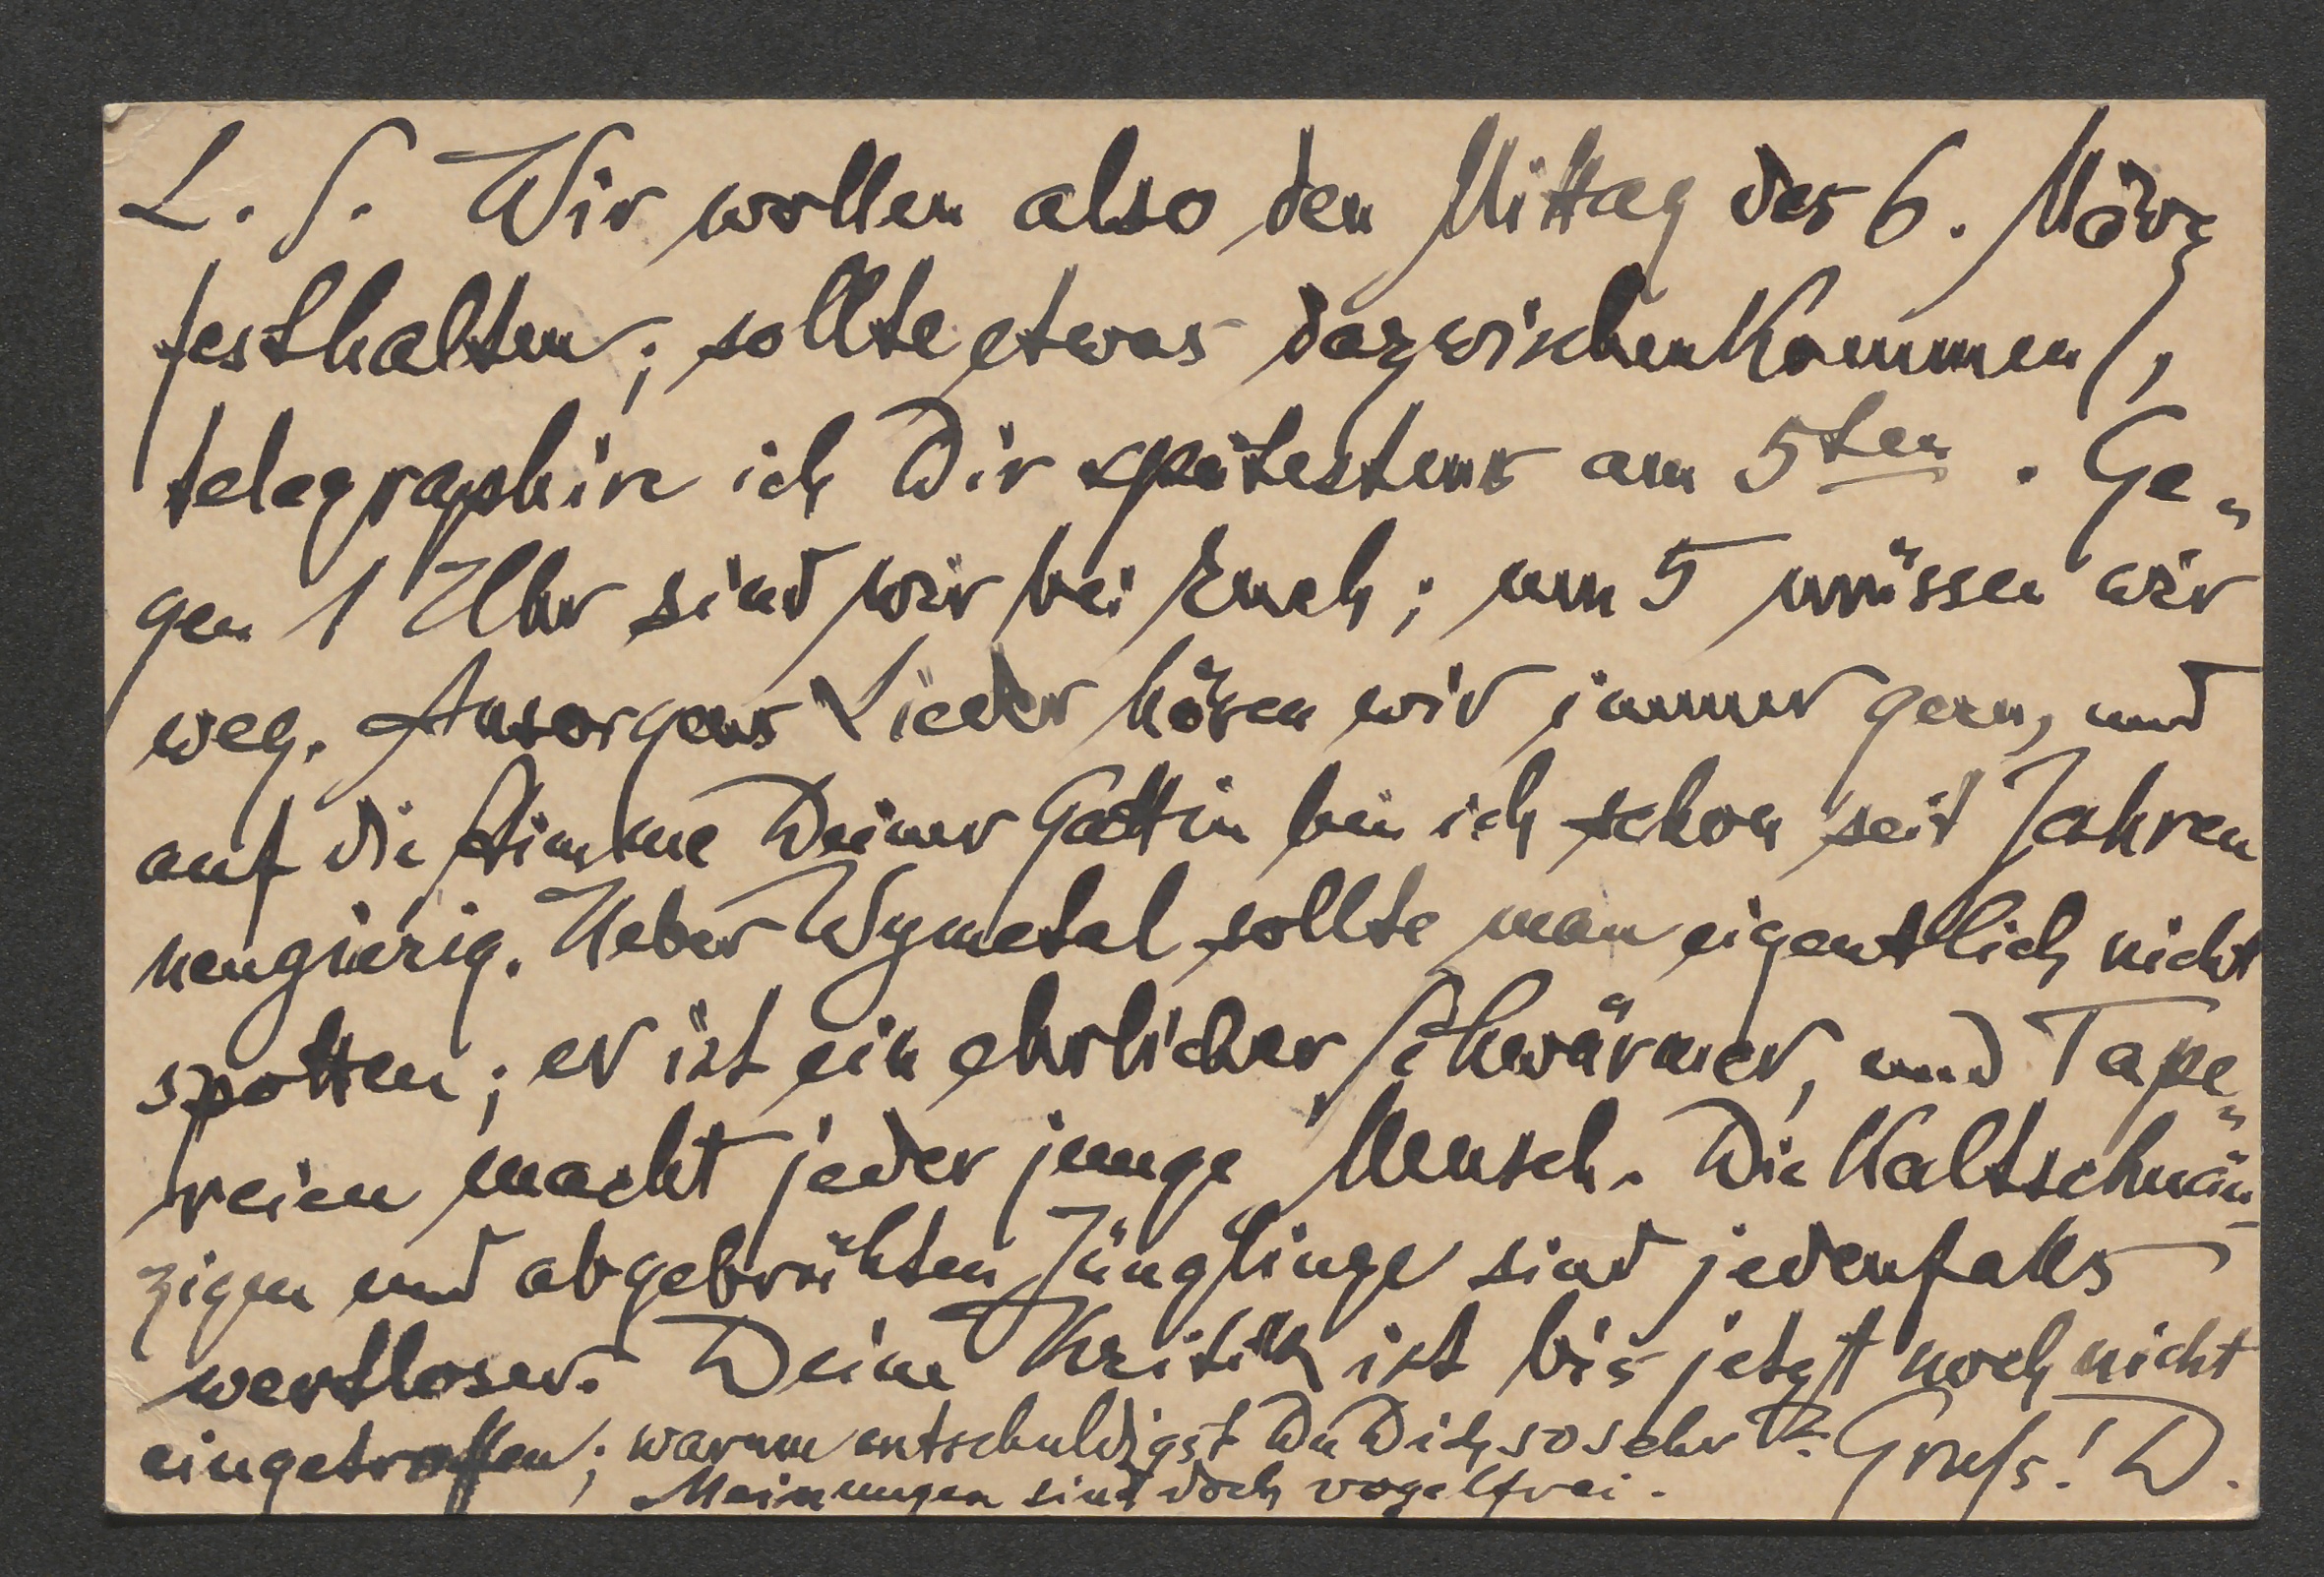 L. S. Wir wollen also den Mittag des 6. März
festhalten; sollte etwas dazwischenkommen,
telegraphire ich Dir spätestens am 5ten. Ge-
gen 1 Uhr sind wir bei Euch; um 5 müssen wir
weg. Ansorgens Lieder hören wir immer gern, und
auf die Stimme Deiner Gattin bin ich schon seit Jahren
neugierig. Ueber Wymetal sollte man eigentlich nicht
spotten; er ist ein ehrlicher Schwärmer, und Tape-
reien macht jeder junge Mensch. Die kaltschnäu-
zigen und abgebrühten Jünglinge sind jedenfalls
wertloser. Deine Kritik ist bis jetzt noch nicht
eingetroffen; warum entschuldigst Du Dich so sehr?
Meinungen sind doch vogelfrei. Gruß! D.